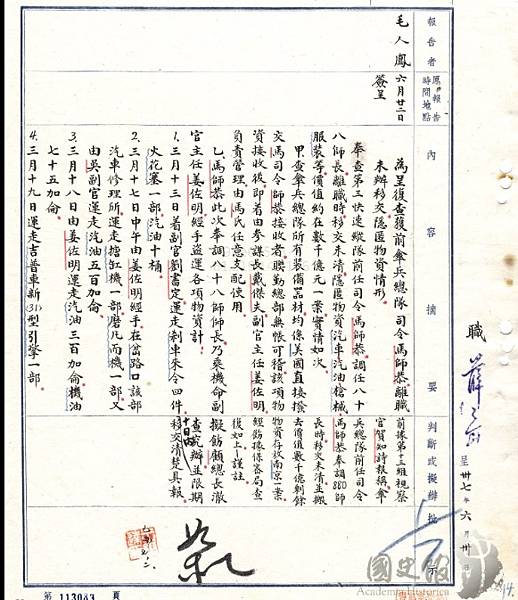 報告者
原報告時間地點
內容摘要
判斷或擬辦
批示
毛人鳳
六月廿二日
簽呈
為呈復查復前傘兵總隊司令馬師恭離職
未辦移交隱匿物資情形
奉查第三快速縱隊前任司令馬師恭調任八十
八師長離職時移交未清隱匿物資汽車汽油槍械
服裝等價值約在數千億元一案實情如次
甲查傘兵總隊所有裝備器材均係美國直接撥
交馬司令師恭接收者聯勤總部無帳可稽該項物
資接收後即着由參謀長戴傑夫副官主任姜佐明
負責管理由馬氏任意支配使用
乙馬師恭此次奉調八十八師師長乃乘機命副
官主任姜佐明經手盜運各項物資計
1.三月十三日着副官劉書定運走剎車來令四件
火花塞一部汽油十桶
2.三月十七日中午由姜佐明經手在岔路口該部
汽車修理所運走搪缸機一部磨凡而機一部又
由吳副官運走汽油五百加侖
3.三月十八日由姜佐明運走汽油三百加侖機油
七十五加侖
4.三月十九日運走吉普車新(31)型引擎一部
前據第十三組視察
官賀知詩報稱傘
兵總隊前任司令
馬師恭奉調880師
長時移交未清並搬
去價值數千億剩餘
物資存放南京一案
經飭據保密局查
復如上謹註
擬飭顧總長澈
查究辦並限期
十日內
移交清楚具報
職
呈卅七年六月卅日
第113083頁
國史館
Academia Historica